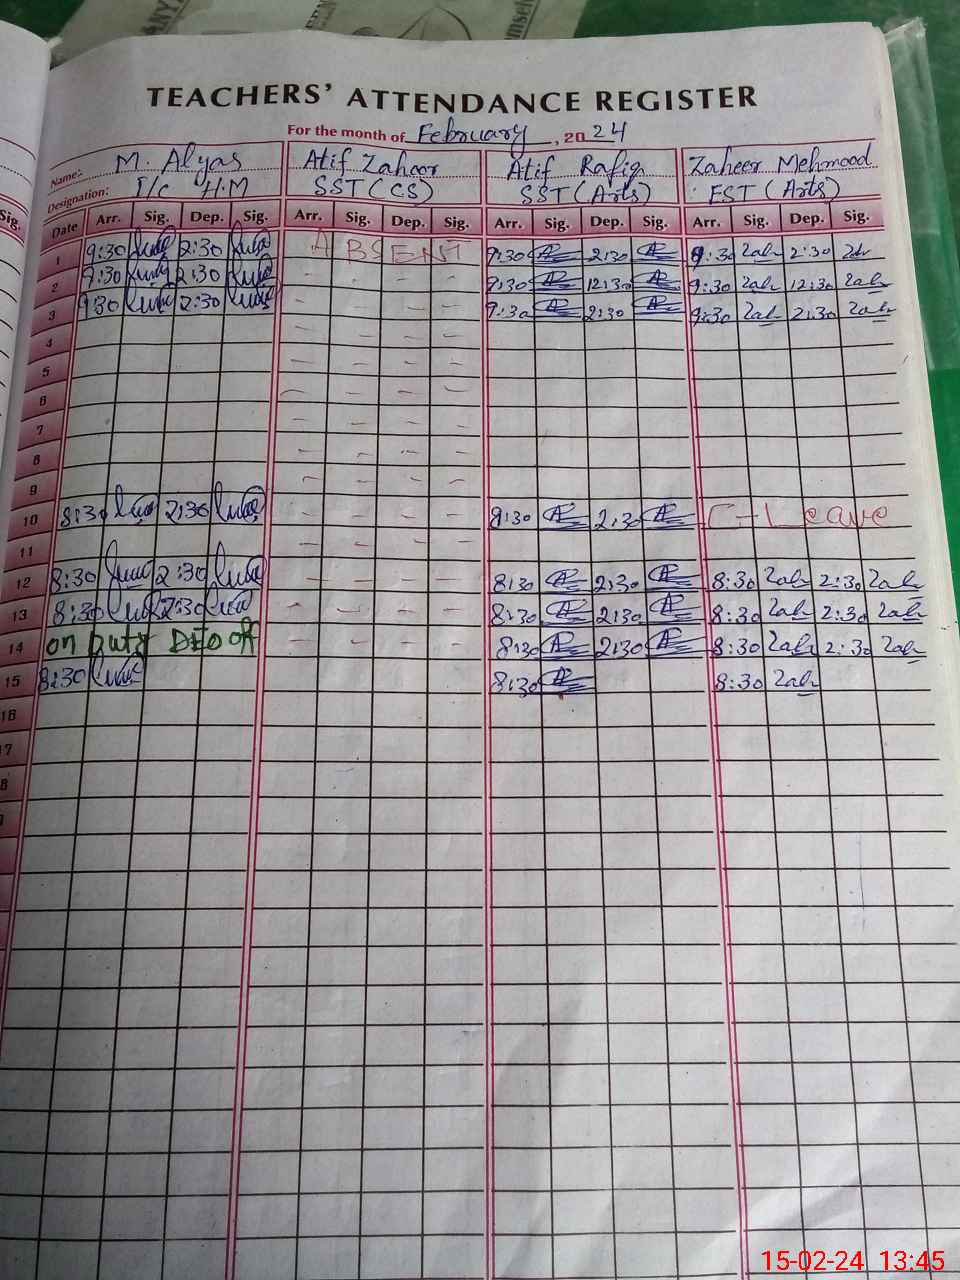 TEACHERS' ATTENDANCE REGISTER
For the month of February, 2024
Name: M. Alyas Atif Zahoor Atif Rafiq Zaheer Mehmood
Designation: I/C H.M SST (CS) SST (Arts) EST (Arts)
Date Arr. Sig. Dep. Sig. Arr. Sig. Dep. Sig. Arr. Sig. Dep. Sig. Arr. Sig. Dep. Sig.
1 9:30 2:30 ABSENT 9:30 2:30 9:30 Zah 2:30 Zah
2 9:30 2:30 9:30 12:30 9:30 Zah 12:30 Zah
3 9:30 2:30 9:30 2:30 9:30 Zah 2:30 Zah
4
5
6
7
8
9
10 8:30 2:30 8:30 2:30 C-Leave
11
12 8:30 2:30 8:30 2:30 8:30 Zah 2:30 Zah
13 8:30 2:30 8:30 2:30 8:30 Zah 2:30 Zah
14 on Duty DEO off 8:30 2:30 8:30 Zah 2:30 Zah
15 8:30 8:30 8:30 Zah
16
17
15-02-24 13:45